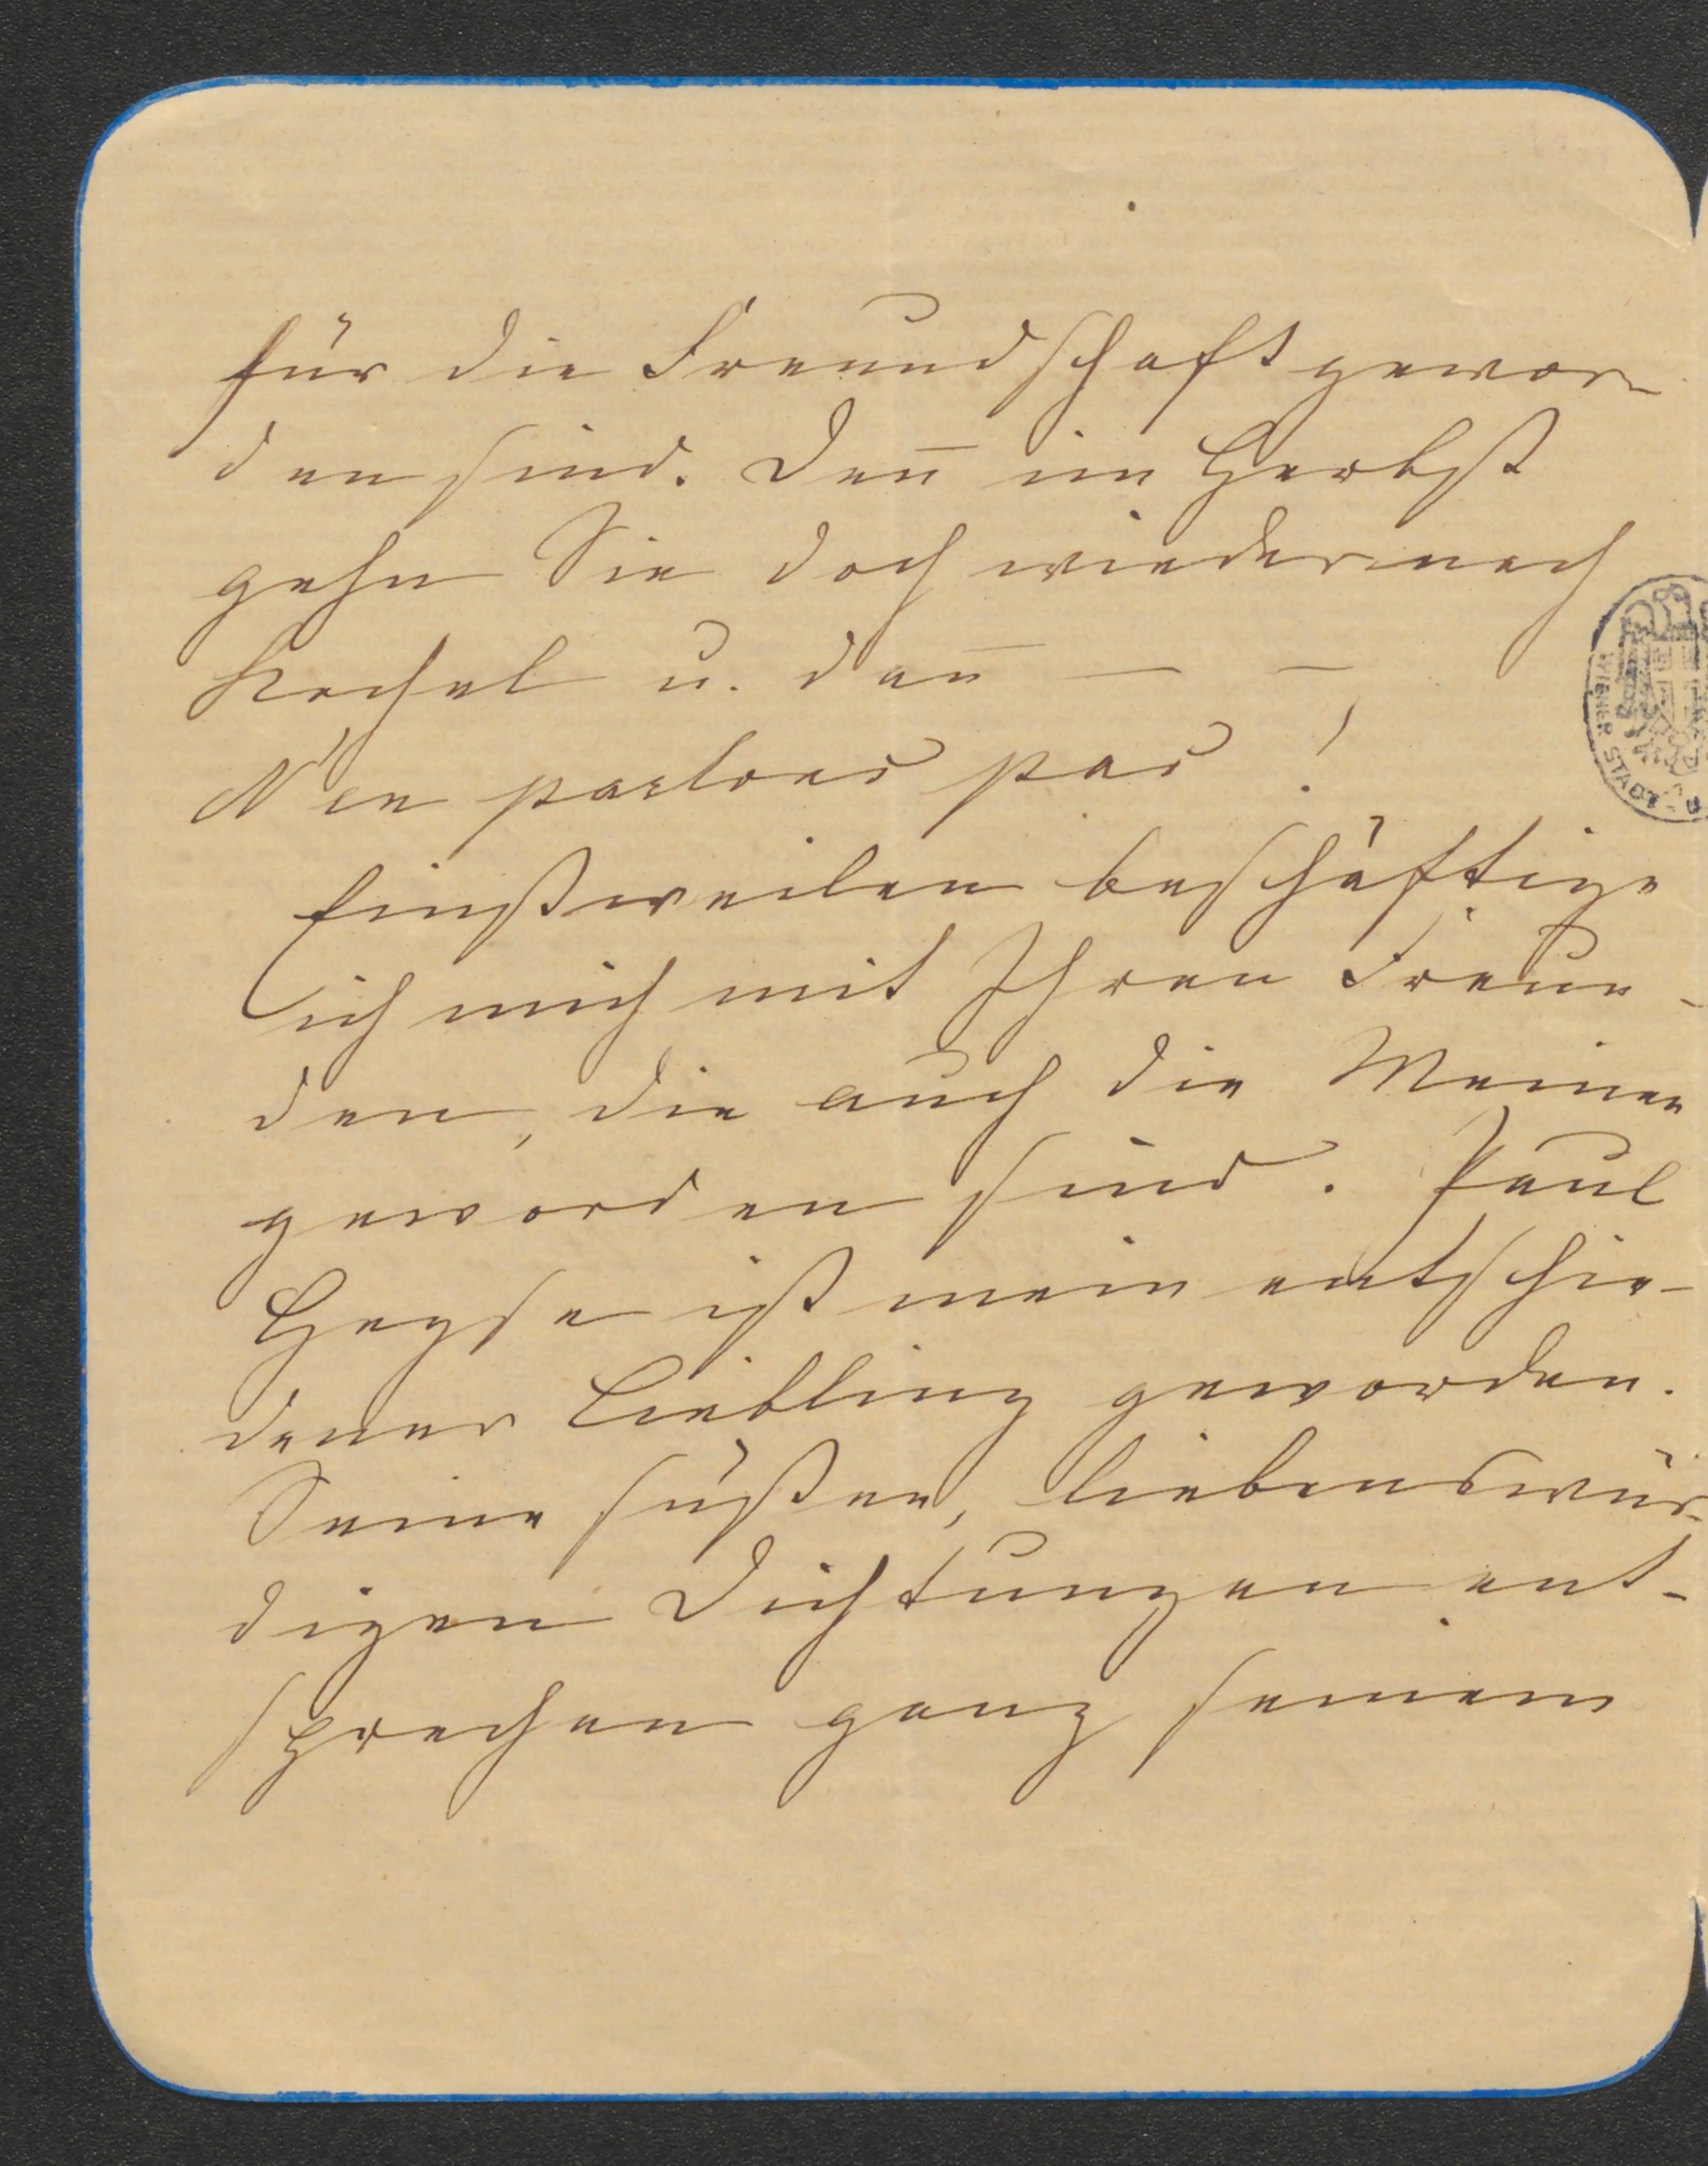 für die Freundschaft gewor-
den sind. Den̄ im Herbst
gehn Sie doch wieder nach
Kochel u. dan̄ — —
N'en parlons pas!
Einstweilen beschäftige
ich mich mit Ihren Freun-
den, die auch die Meinen
geworden sind. Paul
Heyse ist mein entschie-
dener Liebling geworden.
Seine süßen, liebenswür-
digen Dichtungen ent-
sprechen ganz seinem
WIENER STADT-